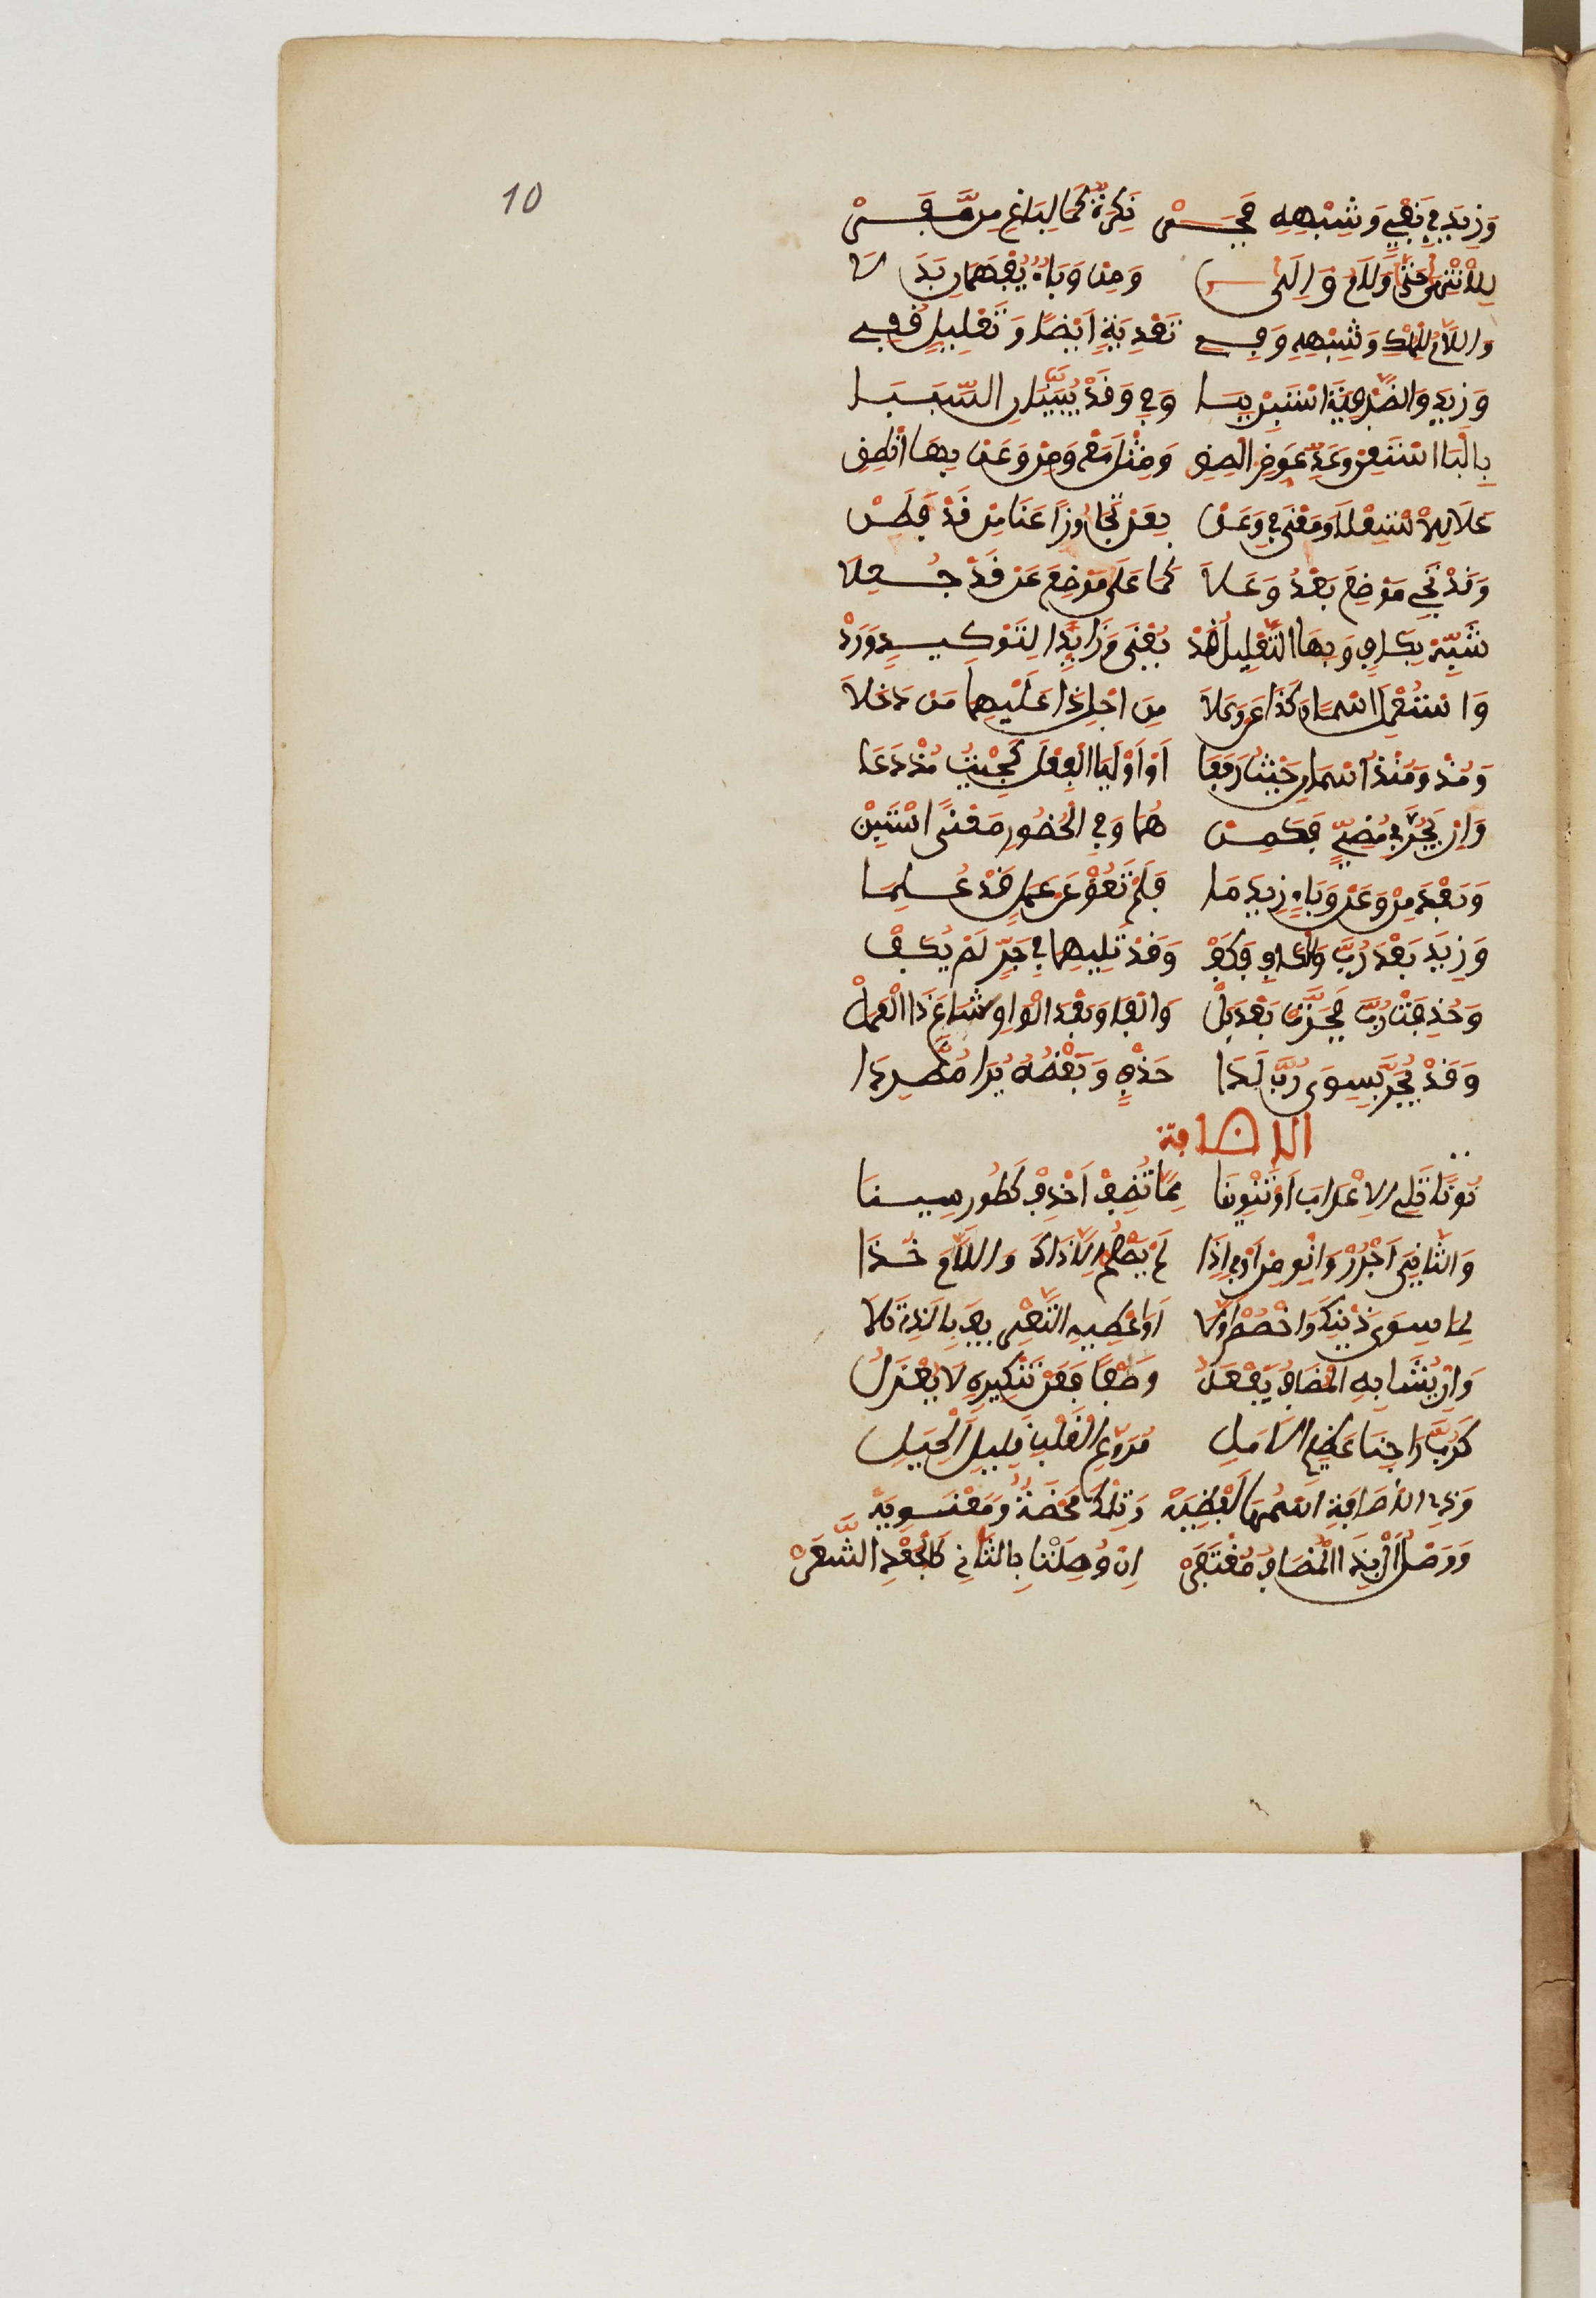 10
وَزِيدَ فِي نَفْيٍ وَشِبْهِهِ فَجَرّْ نَكِرَةً كَمَا لِبَاغٍ مِن مَّفَرّْ
لِلْانْتِهَا حَتَّى وَلَامٌ وَإِلَى وَمِنْ وَبَاءٌ يُفْهِمَانِ بَدَلَا
وَاللَّامُ لِلْمِلْكِ وَشِبْهِهِ وَفِي تَعْدِيَةٍ أَيْضًا وَتَعْلِيلٍ قُفِي
وَزِيدَ وَالظَّرْفِيَّةَ اسْتَبِنْ بِبَا وَفِي وَقَدْ يُبَيِّنَانِ السَّبَبَا
بِالْبَا اسْتَعِنْ وَعَدِّ عَوِّضْ أَلْصِقِ وَمِثْلَ مَعْ وَمِنْ وَعَنْ بِهَا انْطِقِ
عَلَا لِلْاسْتِعْلَا وَمَعْنَى فِي وَعَنْ بِعَنْ تَجَاوُزًا عَنَا مَنْ قَدْ فَطَنْ
وَقَدْ تَجِي مَوْضِعَ بَعْدُ وَعَلَا كَمَا عَلَى مَوْضِعَ عَنْ قَدْ جُعِلَا
شَبِّهْ بِكَافٍ وَبِهَا التَّعْلِيلُ قَدْ يُعْنَى وَزَائِدًا لِتَوْكِيدٍ وَرَدْ
وَاسْتُعْمِلَ اسْمًا وَكَذَا عَنْ وَعَلَا مِنْ اجْلِ ذَا عَلَيْهِمَا مِنْ دَخَلَا
وَمُذْ وَمُنْذُ اسْمَانِ حَيْثُ رَفَعَا أَوْ أُولِيَا الْفِعْلَ كَجِئْتُ مُذْ دَعَا
وَإِنْ يَجُرَّا فِي مُضِيٍّ فَكَمِنْ هُمَا وَفِي الْحُضُورِ مَعْنَى اسْتَبِنْ
وَبَعْدَ مِنْ وَعَنْ وَبَاءٍ زِيدَ مَا فَلَمْ تَعُقْ عَنْ عَمَلٍ قَدْ عُلِمَا
وَزِيدَ بَعْدَ رُبَّ وَالْكَافِ فَكَفّْ وَقَدْ تَلِيهِمَا فِي جَرٍّ لَمْ يُكَفّْ
وَحُذِفَتْ رُبَّ فَجَرَّتْ بَعْدَ بَلْ وَالْفَا وَبَعْدَ الْوَاوِ شَاعَ ذَا الْعَمَلْ
وَقَدْ يُجَرُّ بِسِوَى رُبَّ لَدَا حَذْفٍ وَبَعْضُهُ يُرَا مُطَّرِدَا
الإضافة
نُونًا تَلِي الْاعْرَابَ أَوْ تَنْوِينَا مِمَّا تُضِيفُ احْذِفْ كَطُورِ سِينَا
وَالثَّانِيَ اجْرُرْ وَانْوِ مِنْ أَوْ فِي إِذَا لَمْ يَصْلُحِ الَّا ذَاكَ وَاللَّامَ خُذَا
لِمَا سِوَى ذَيْنِكَ وَاخْصُصْ أَوَّلَا أَوْ أَعْطِهِ التَّعْرِيفَ بِالَّذِي تَلَا
وَإِنْ يُشَابِهِ الْمُضَافُ يَفْعَلُ وَصْفًا فَعَنْ تَنْكِيرِهِ لَا يُعْزَلُ
كَرُبَّ رَاجِينَا عَظِيمِ الْأَمَلِ مُرَوَّعِ الْقَلْبِ قَلِيلِ الْحِيَلِ
وَذِي الْإِضَافَةِ اسْمُهَا لَفْظِيَّهْ وَتِلْكَ مَحْضَةٌ وَمَعْنَوِيَّهْ
وَوَصْلُ أَلْ بِذَا الْمُضَافِ مُغْتَفَرْ إِنْ وُصِلَتْ بِالثَّانِ كَالْجَعْدِ الشَّعَرْ